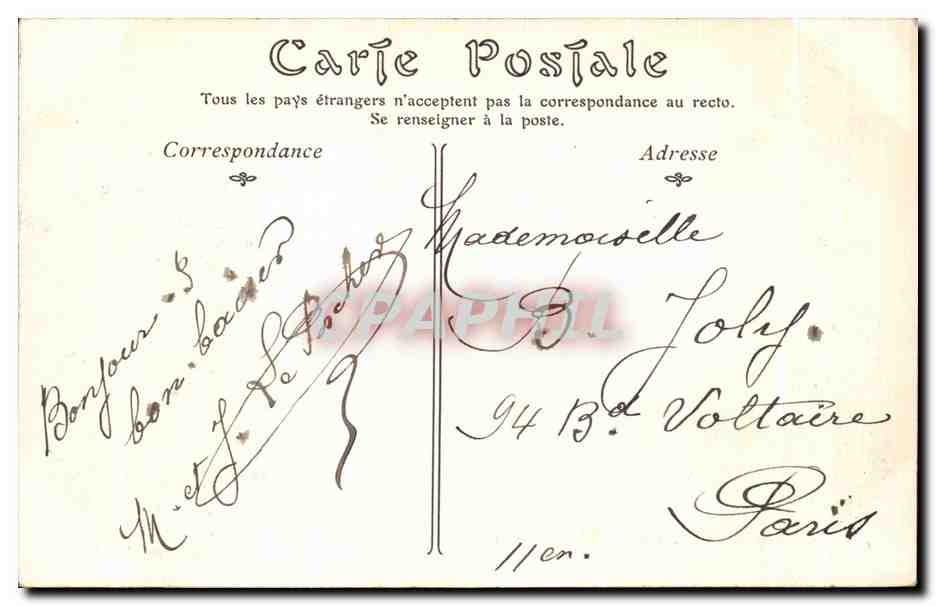 Carte Postale
Tous les pays étrangers n'acceptent pas la correspondance au recto.
Se renseigner à la poste.
Correspondance
Bonjour &
bon
M. et J. Le Rocher
Adresse
Mademoiselle
B. Joly.
94 Bd. Voltaire
Paris
11 en.
CPAPHIL